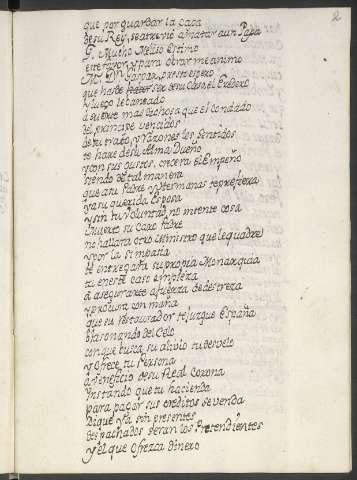 2
que por guardar la casa
de su Rey, se atrevio a matar a un Papa
G. Mucho Meliso Estimo
este favor, y para obrar me animo
Mr. Dn. Gaspar, presto espero
que has de ser de su Casa el Eredero
y luego le cantado
a suerte mas dichosa que el condado
del principe vencidos
de tu trato, y razones los sentidos
te hare de su Alma Dueño
y con sus gustos, crecera el Empeño
siendo de tal manera
que a tu Padre y Hermanas te prefiera
y a su querida Esposa
y sin tu voluntad, no intente cosa
Muerto su Caro Padre
no hallara otro Ministro que le quadre
y por la simpatia
te entregara su propia Monarquia
tu en este caso empieza
a asegurarte a fuerza de destreza
y procura con maña
que su restaurador te juzgue España
blasonando del Celo
con que busca su alivio tu desvelo
y ofrece tu Persona
a beneficio de su Real Corona
instando que tu hacienda
para pagar sus creditos se venda
Dique ya sin presentes
despachados seran los Pretendientes
y el que ofrezca dinero